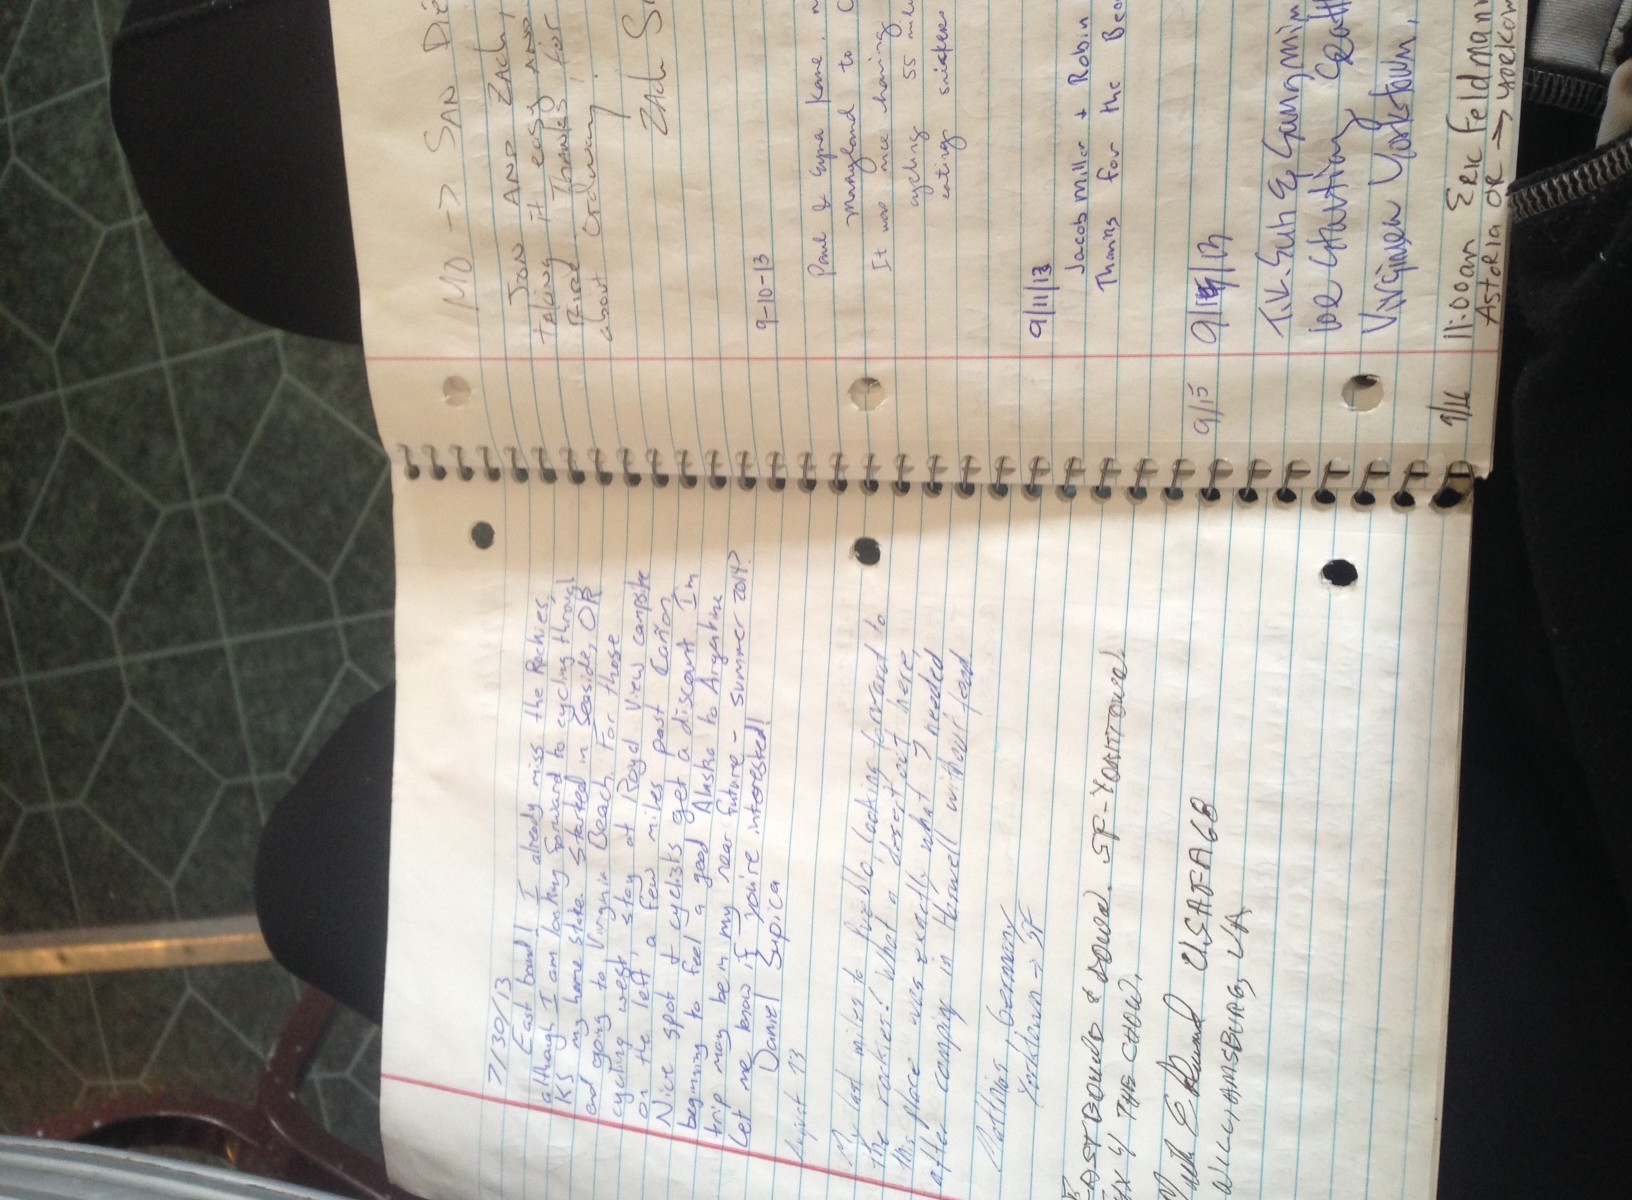 7/30/13
East bound! I already miss the Rockies,
although I am looking forward to cycling through
KS my home state. Started in Seaside, OR
and going to Virginia Beach. For those
cycling west, stay at Royal View campsite
on the left, a few miles past Cañon.
Nice spot & cyclists get a discount. I'm
beginning to feel a good Alaska to Argentina
trip may be in my near future - summer 2014?
Let me know if you're interested!
Daniel Supica
August 13
My last miles to Pueblo looking forward to
the rockies! What a desert out here,
this place was exactly what I needed
after camping in Haswell without food
Mathias, Germany
Yorktown → SF
EASTBOUND & DOWN. SF-YORKTOWN.
4 THE CHOW.
USAFA 68
WILLIAMSBURG, VA
MO → SAN DIE
JON AND ZACH,
taking it easy AND
Thanks for
about ordinary!
ZACH S
9-10-13
Paul &
maryland to C
It was nice having
cycling 55 mil
eating snickers
9/11/13
Jacob Miller + Robin
Thanks for the Bea
9/15
9/15/13
Virginia Yorktown.
9/16
11:00am Eric Feldmann
Astoria OR → Yorktow